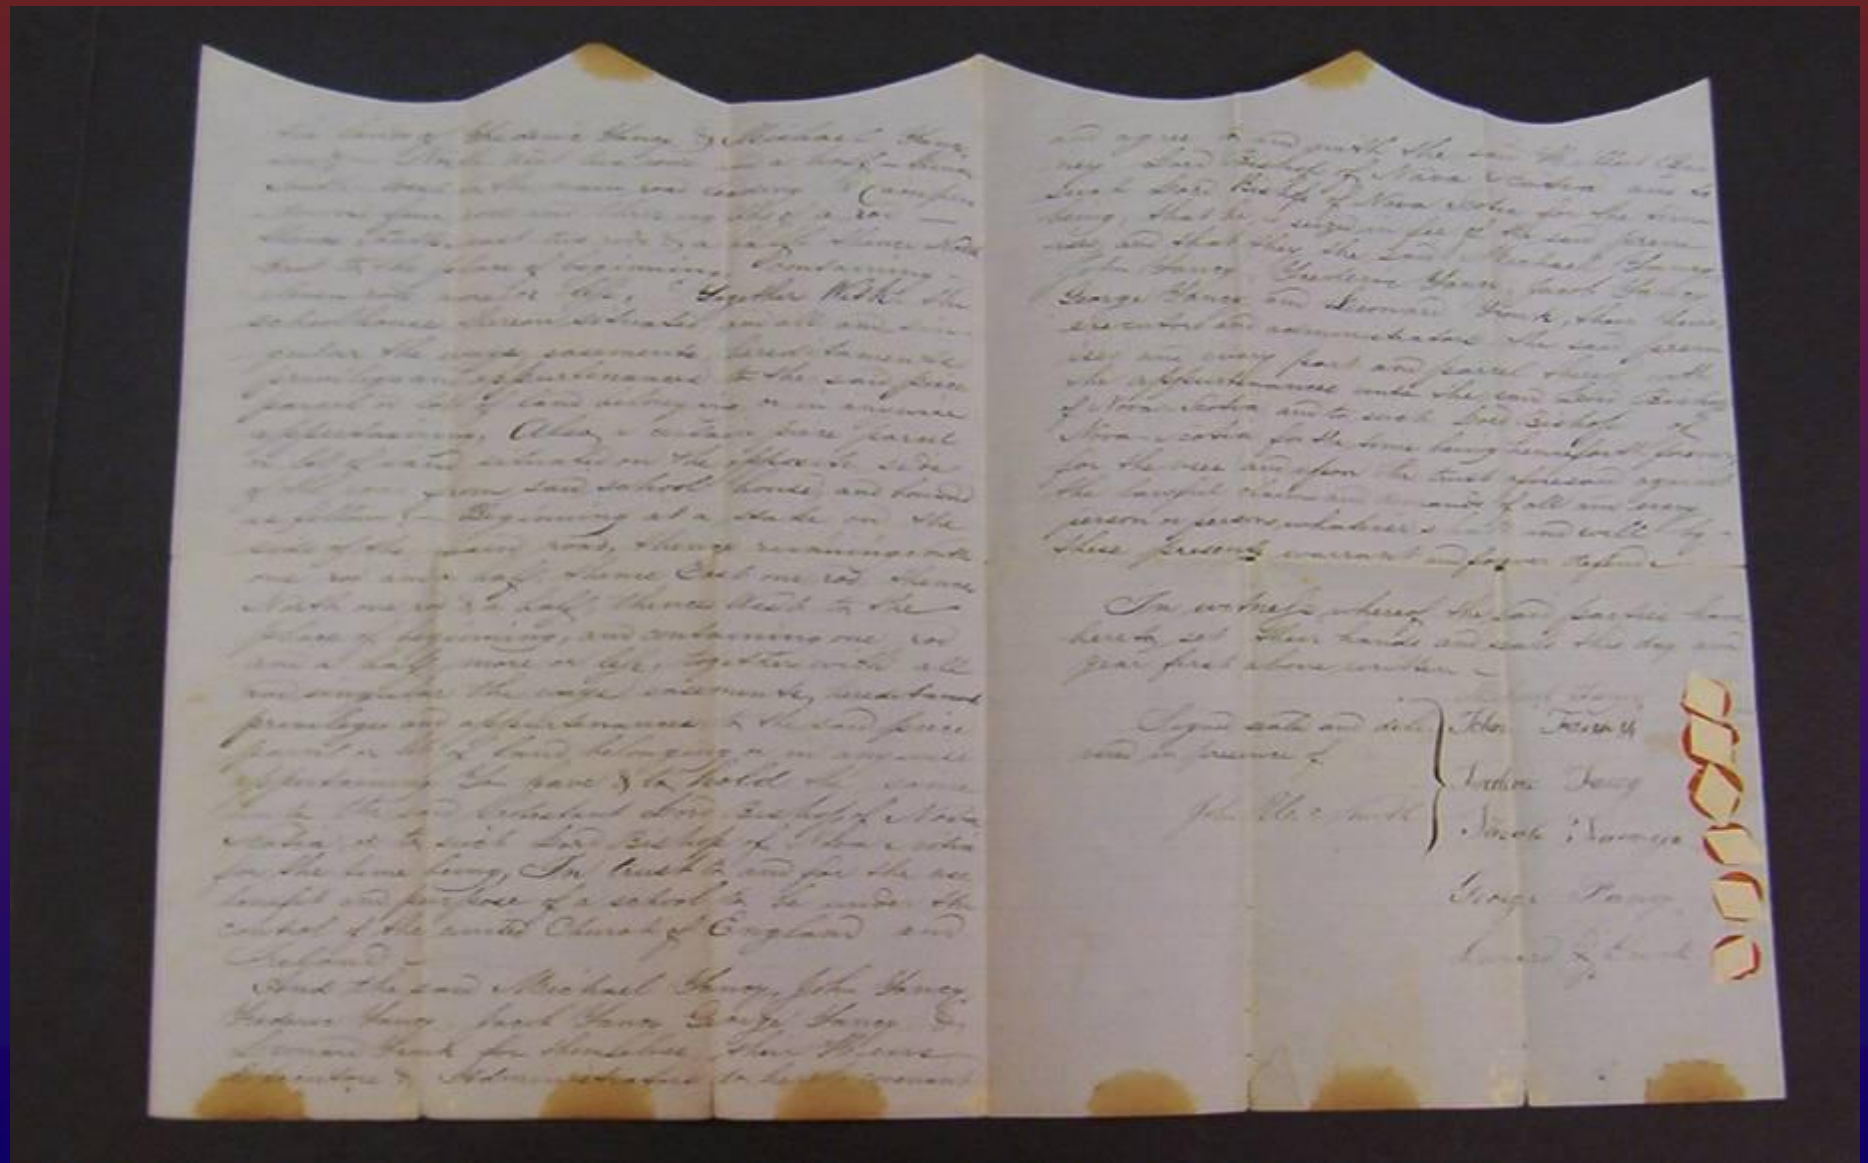 the lands of Frederic Fancy & Michael Fancy
west to the main road leading to Camper
down four rods and three eighths of a rod —
thence South east two rods & a half thence North
east to the place of beginning, Containing
rods more or less, Together With the
schoolhouse thereon situated and all and sin
gular the ways, easements, hereditaments
privileges and appurtenances to the said piece
parcel or lot of land belonging or in anywise
appertaining, Also a certain piece parcel
or lot of land situated on the opposite side
of the road from said school house, and bounded
as follows — Beginning at a stake on the
side of the main road, thence running south
one rod and a half, thence East one rod thence
North one rod & a half, thence West to the
place of beginning, and containing one rod
and a half more or less, together with all
and singular the ways easements, hereditaments
privileges and appurtenances to the said piece
parcel or lot of land belonging or in anywise
appertaining To have & to hold the same
unto the said Protestant Lord Bishop of Nova
Scotia or to such Lord Bishop of Nova Scotia
for the time being, In trust to and for the use
benefit and purpose of a school to be under the
control of the united Church of England and
Ireland —
And the said Michael Fancy, John Fancy,
Frederic Fancy, Jacob Fancy George Fancy &
Leonard Fronk for themselves, their Heirs
Executors & Administrators do hereby covenant
and agree to and with the said
Lord Bishop of Nova Scotia and to
such Lord Bishop of Nova Scotia for the time
being, that he is seized in fee of the said prem
ises, and that they the said Michael Fancy
John Fancy, Frederic Fancy, Jacob Fancy
George Fancy and Leonard Fronk, their heirs,
executors and administrators the said prem
ises and every part and parcel thereof with
the appurtenances unto the said Lord Bishop
of Nova Scotia and to such Lord Bishop of
Nova Scotia for the time being henceforth forever
for the uses and upon the trust aforesaid against
the lawful claims and demands of all and every
person or persons, whatsoever shall and will by
these presents warrant and forever defend —
In witness whereof the said parties have
hereto set their hands and seals this day and
year first above written —
Signed seald and deli
vered in presence of
John
Michael Fancy
John
Fancy
Jacob
George Fancy
Leonard X Fronk